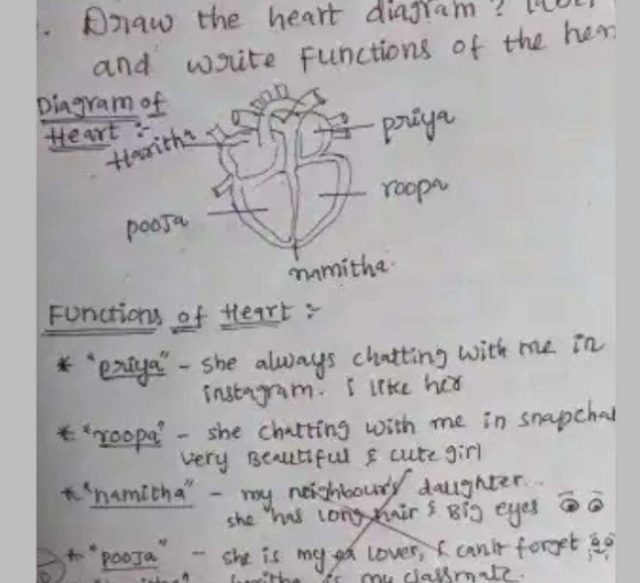 . Draw the heart diagram ?
and write Functions of the
Diagram of
Heart :-
Haritha
priya
roopa
pooja
namitha.
Functions of Heart :-
* "priya" - she always chatting with me in
instagram. i like her
* "roopa" - she chatting with me in snapchat
very Beautiful & cute girl
* "namitha" - my neighbour's daughter...
she has long hair & Big eyes
* "pooja" - she is my ex lover, i can't forget
is my classmate.